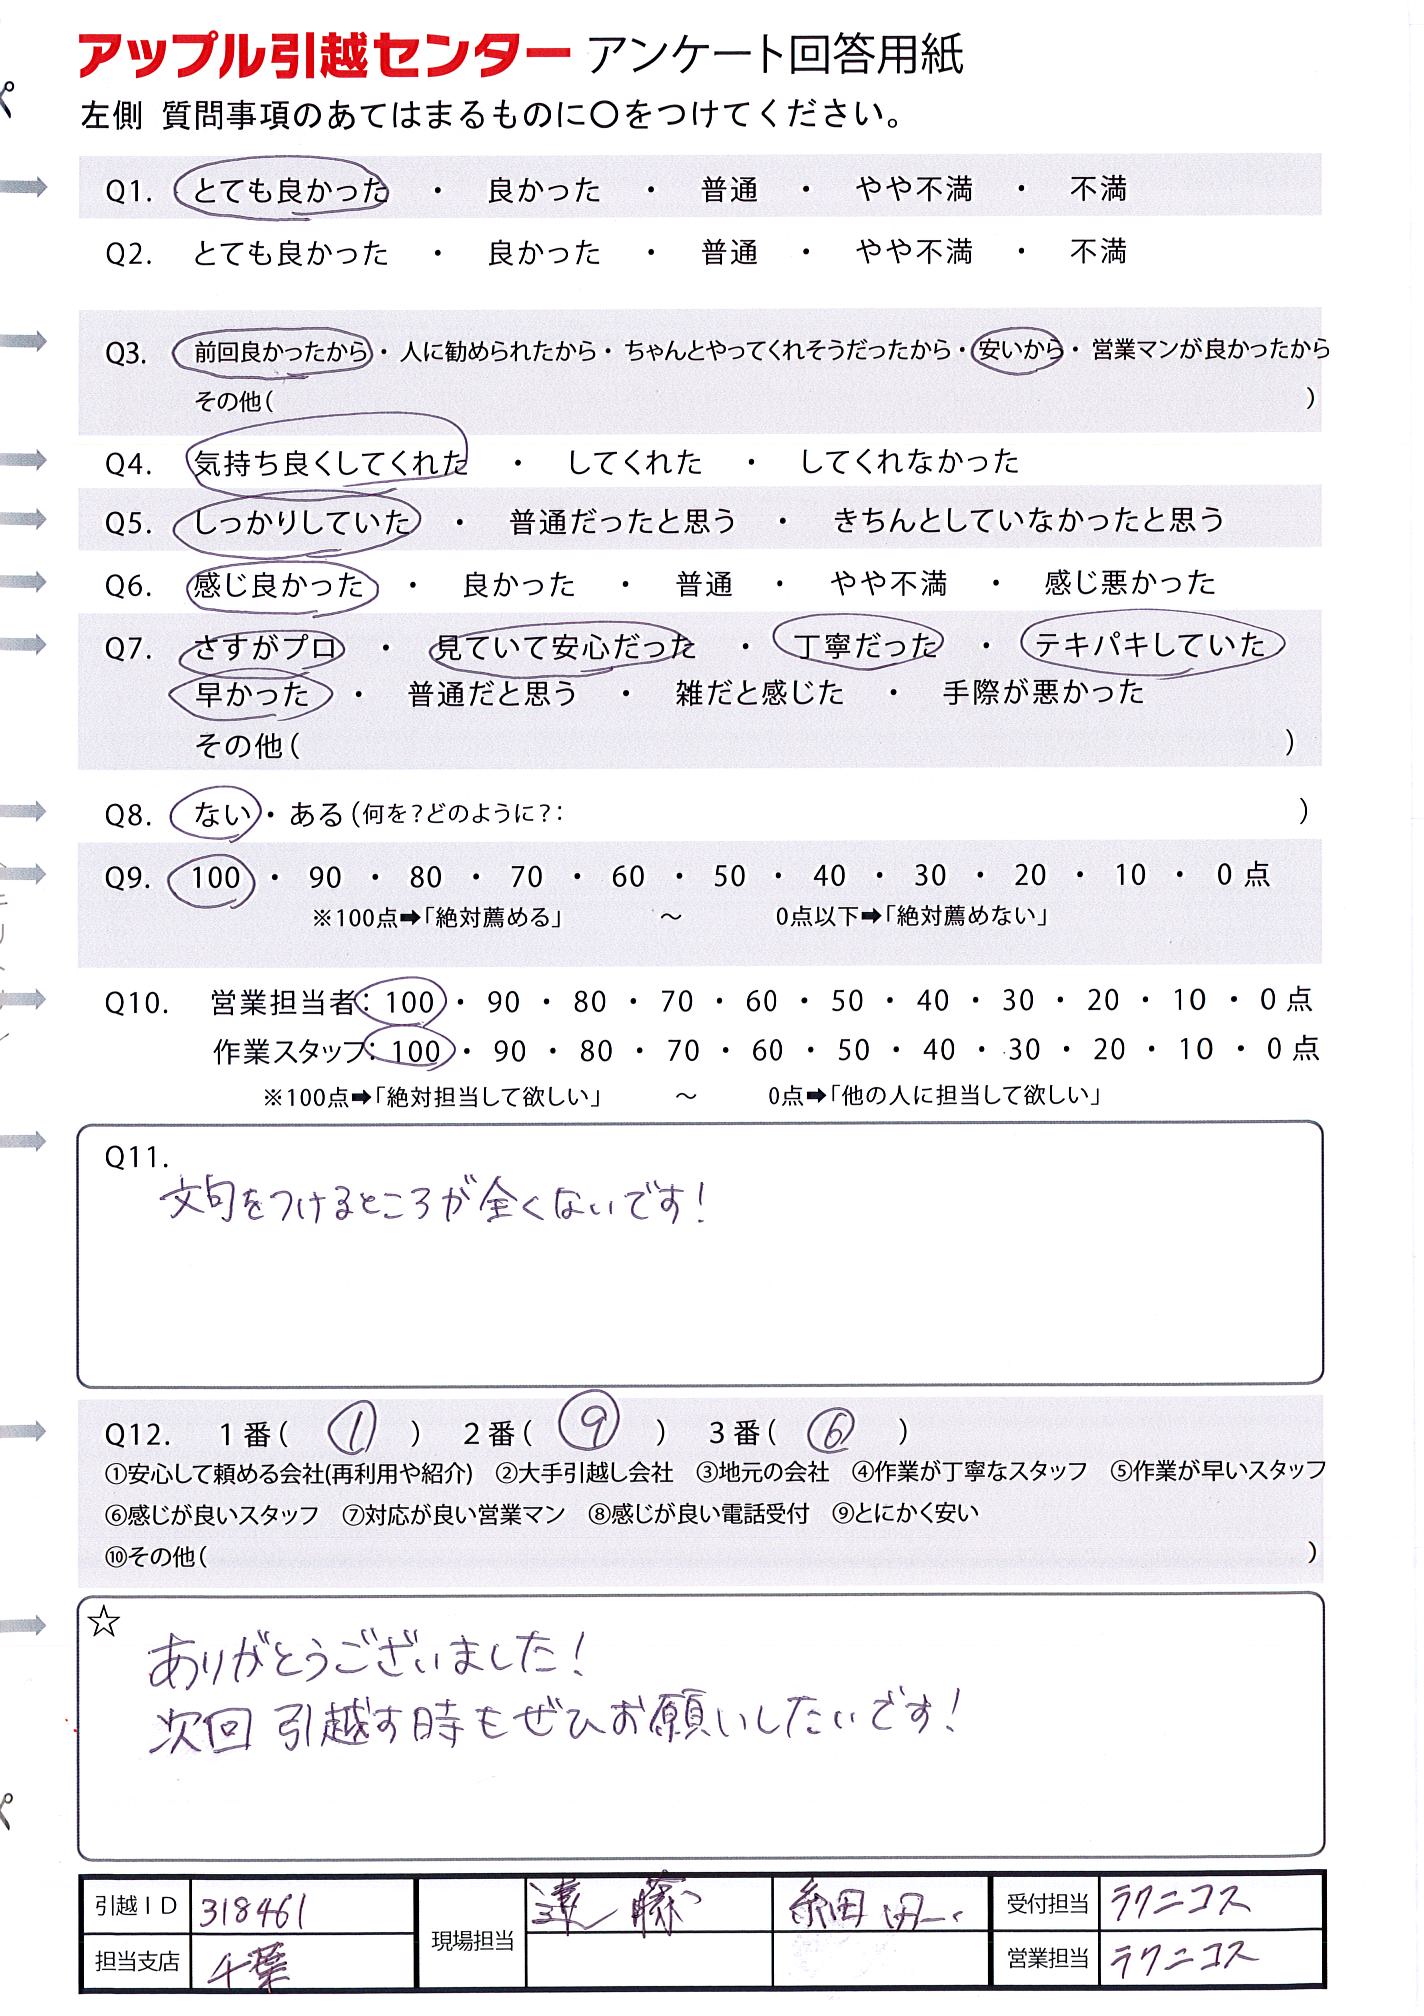 アップル引越センター アンケート回答用紙
左側 質問事項のあてはまるものに〇をつけてください。
Q1. とても良かった ・ 良かった ・ 普通 ・ やや不満 ・ 不満
Q2. とても良かった ・ 良かった ・ 普通 ・ やや不満 ・ 不満
Q3. 前回良かったから・ 人に勧められたから・ ちゃんとやってくれそうだったから・安いから・ 営業マンが良かったから
その他( )
Q4. 気持ち良くしてくれた ・ してくれた ・ してくれなかった
Q5. しっかりしていた ・ 普通だったと思う ・ きちんとしていなかったと思う
Q6. 感じ良かった ・ 良かった ・ 普通 ・ やや不満 ・ 感じ悪かった
Q7. さすがプロ ・ 見ていて安心だった ・ 丁寧だった ・ テキパキしていた
早かった ・ 普通だと思う ・ 雑だと感じた ・ 手際が悪かった
その他( )
Q8. ない・ ある(何を?どのように?: )
Q9. 100 ・ 90 ・ 80 ・ 70 ・ 60 ・ 50 ・ 40 ・ 30 ・ 20 ・ 10 ・ 0 点
※100点➡「絶対薦める」 〜 0点以下➡「絶対薦めない」
Q10. 営業担当者: 100 ・ 90 ・ 80 ・ 70 ・ 60 ・ 50 ・ 40 ・ 30 ・ 20 ・ 10 ・ 0 点
作業スタッフ: 100 ・ 90 ・ 80 ・ 70 ・ 60 ・ 50 ・ 40 ・ 30 ・ 20 ・ 10 ・ 0 点
※100点➡「絶対担当して欲しい」 〜 0点➡「他の人に担当して欲しい」
Q11.
文句をつけるところが全くないです!
Q12. 1番( ① ) 2番( ⑨ ) 3番( ⑥ )
①安心して頼める会社(再利用や紹介) ②大手引越し会社 ③地元の会社 ④作業が丁寧なスタッフ ⑤作業が早いスタッフ
⑥感じが良いスタッフ ⑦対応が良い営業マン ⑧感じが良い電話受付 ⑨とにかく安い
⑩その他( )
☆
ありがとうございました!
次回 引越す時もぜひお願いしたいです!
引越ID 318461 現場担当 遠藤 細田 受付担当 ラクニコス
担当支店 千葉 営業担当 ラクニコス